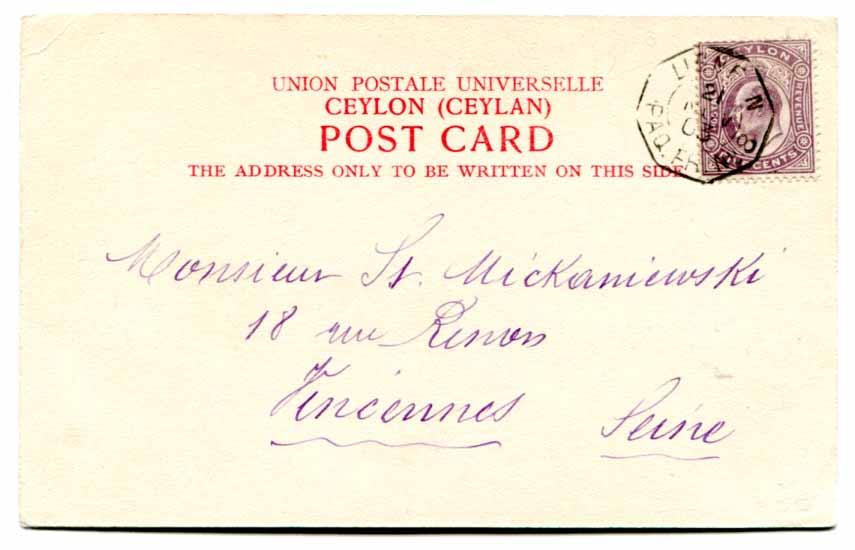 UNION POSTALE UNIVERSELLE
CEYLON (CEYLAN)
POST CARD
THE ADDRESS ONLY TO BE WRITTEN ON THIS SIDE
CEYLON
POSTAGE
REVENUE
CENTS
LIGNE N
PAQ. FR. N° 8
Monsieur St. Mickaniewski
18 rue Renon
Vincennes Seine